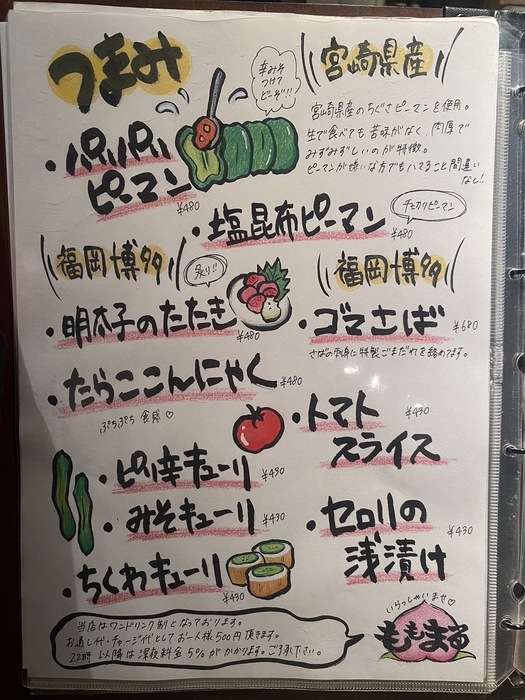 つまみ
辛みそ
つけて
どーぞ!!
宮崎県産
宮崎県産のちぐさピーマンを使用。
生で食べても苦味がなく、肉厚で
みずみずしいのが特徴。
ピーマンが嫌いな方でもハマること間違い
なし!
・パリパリ
ピーマン
¥480
・塩昆布ピーマン
¥480
チギリピーマン
福岡博多
炙り!!
・明太子のたたき
¥480
・たらここんにゃく
¥480
ぷちぷち食感♡
福岡博多
・ゴマさば
¥680
さばの刺身に特製ごまだれを絡めてます。
・トマト
スライス
¥430
・ピリ辛キューリ
¥430
・みそキューリ
¥430
・ちくわキューリ
¥430
・セロリの
浅漬け
¥430
当店はワンドリンク制となっております。
お通し代・チャージ代としてお一人様500円頂きます。
22時以降は深夜料金5%がかかります。ご了承ください。
いらっしゃいませ♡
ももまる